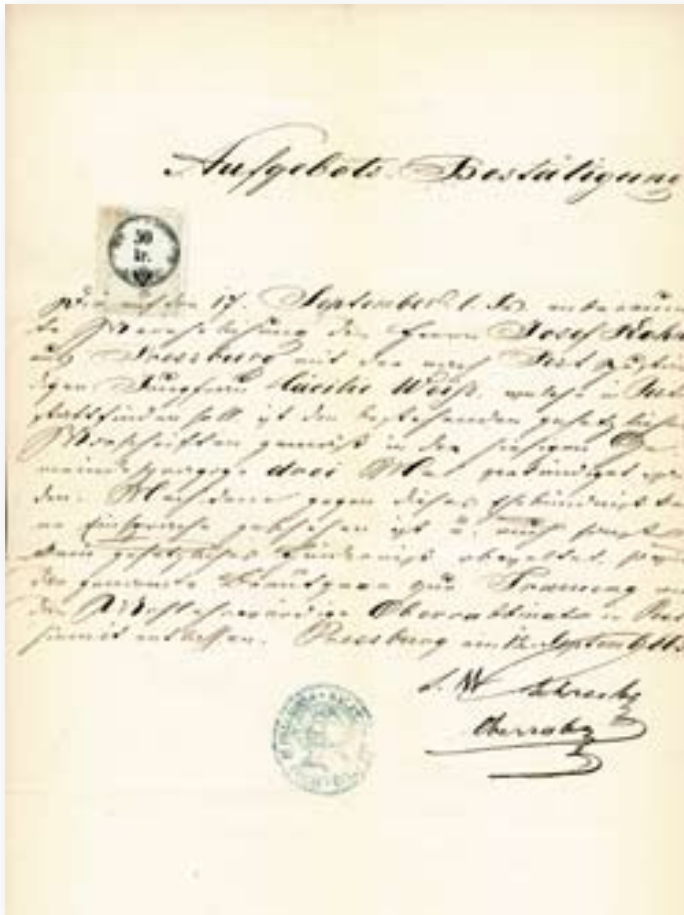 Aufgebots-Bestätigung
50
kr.
Die auf den 17. September l. J. anberaum
te Verehelichung des Herrn Josef Kohn
aus Pressburg mit der nach Pest zustän
digen Jungfrau Cäcilie Weiß, welche in Pest
stattfinden soll ist den bestehenden gesetzlichen
Vorschriften gemäß in der hiesigen Ge
meindesynagoge drei Mal verkündiget wor
den. Nachdem gegen dieses Ehebündniß kei
ne Einsprache geschehen ist u. auch sonst
kein gesetzliches Hinderniß obwaltet, so
der genannte Bräutigam zur Trauung an
das Wohlehrwürdige Oberrabbinate in Pest
hiemit entlassen. Pressburg am 12. September
Oberrabb